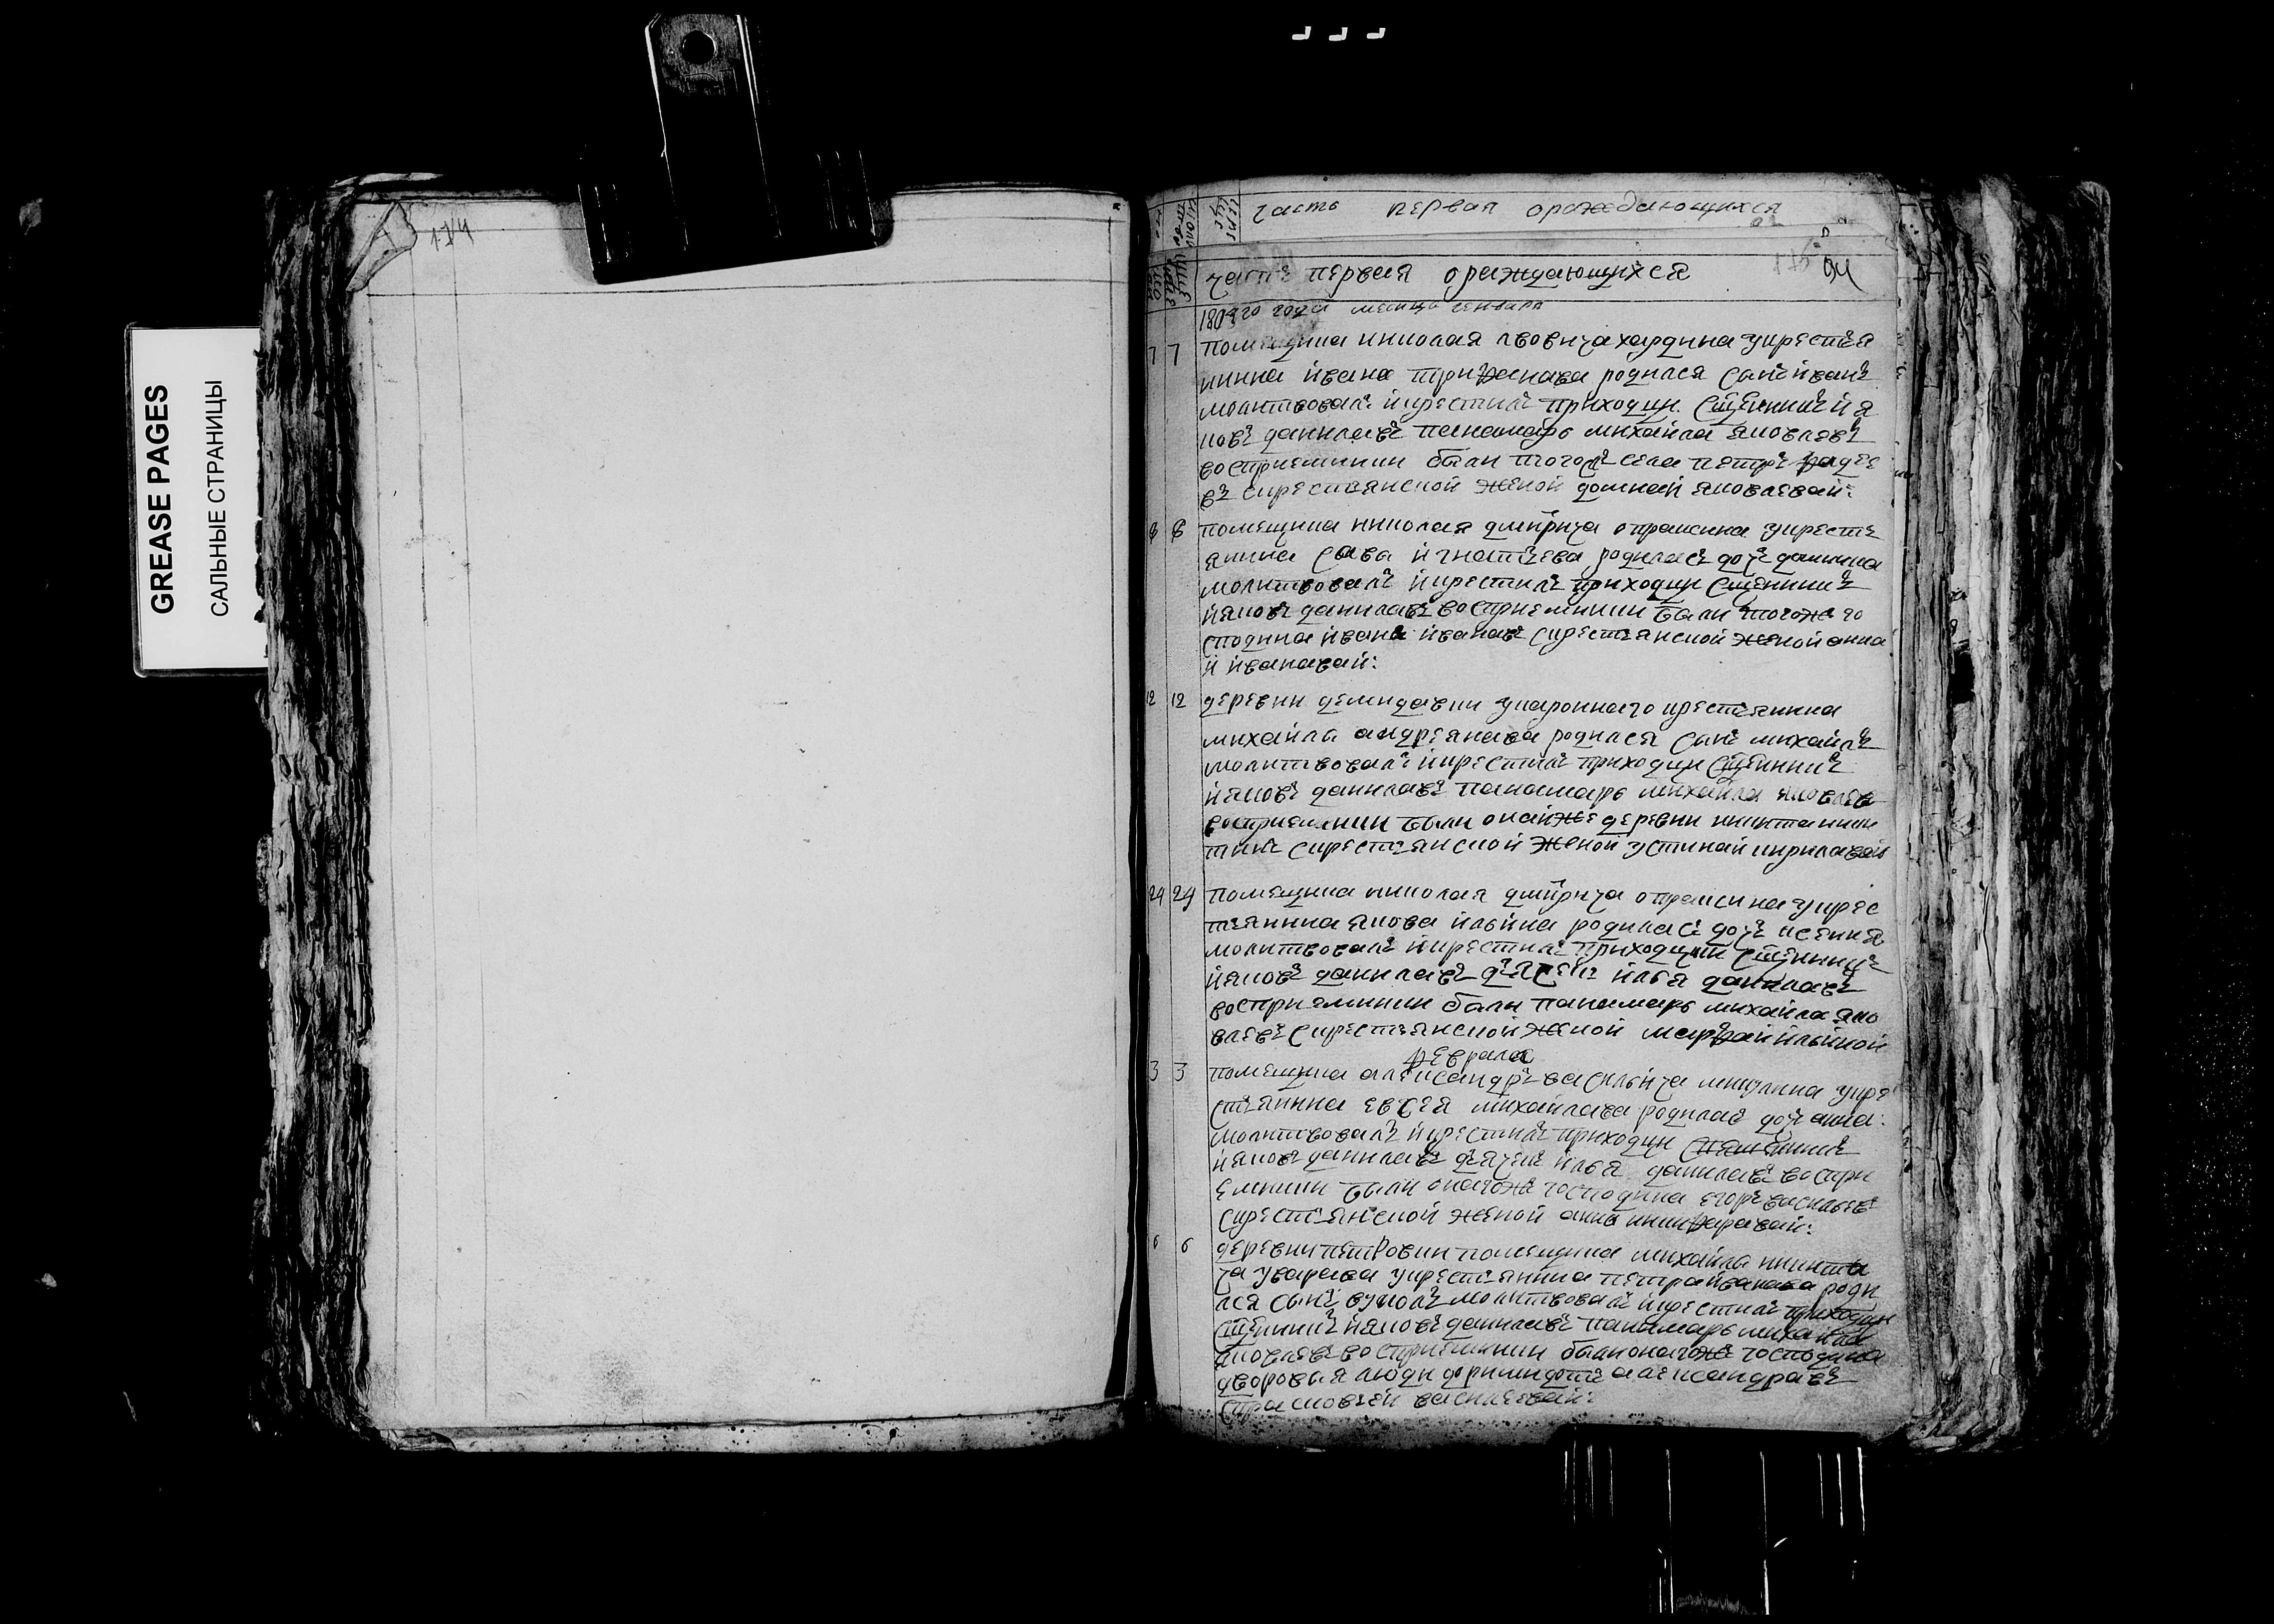 GREASE PAGES
САЛЬНЫЕ СТРАНИЦЫ
174
часть первая ораждающихся
часть первая ораждающихся
94
года месица генваря
7 7 помещика николая лвовича хардина укрестья
нина ивана трифанава родился санъ иванъ
молитвовалъ икрестилъ приходцк. сщенникъ ия
ковъ данилавъ панамарь михайла яковлевъ
восприемники были тогожъ села петръ фадее
въ скрестьянской женой домнай яковлевай:
8 8 помещика николая дмитрича опраксина укресть
янина сава игнатьева родиласъ дочъ
молитвовалъ икрестилъ приходцк сщенникъ
ияковъ данилавъ восприемники были тогоже го
сподина ивана иванавъ скрестьянской женой анна
й иванавай:
12 12 деревни демидавки укароннаго крестьянина
михайла андреянава родился санъ михайлъ
молитвовалъ икрестилъ приходцк сщенникъ
ияковъ данилавъ панамарь михайла яковлевъ
восприемники были онайже деревни никита ники
тинъ скрестьянской женой устинай кирилавай
24 24 помещика николая дмитрича опраксина укрес
тьянина якова ильина родиласъ дочъ ксения
молитвовалъ икрестилъ приходцкий сщенникъ
ияковъ данилавъ дьячекъ илья данилавъ
восприемники были панамарь михайла яко
влевъ скрестьянской женой марфай ильиной
февраля
3 3 помещика александръ васильича укре
стьянина евсея михайлава родилась дочъ анна:
молитвовалъ икрестилъ приходцк
ияковъ данилавъ дьячекъ илья данилавъ воспри
емники были онагоже господина егоръ васильевъ
скрестьянской женой анна никифаравай:
6 6 деревни петровки помещика михайла никити
ча уварава укрестьянина петра иванава роди
лся сынъ вуколъ молитвовалъ икрестилъ приходцк
сщенникъ ияковъ данилавъ панамарь михайла
яковлевъ восприемники были онагоже господина
дворовыя люди дормидотъ александравъ
спрасковьей васильевай: